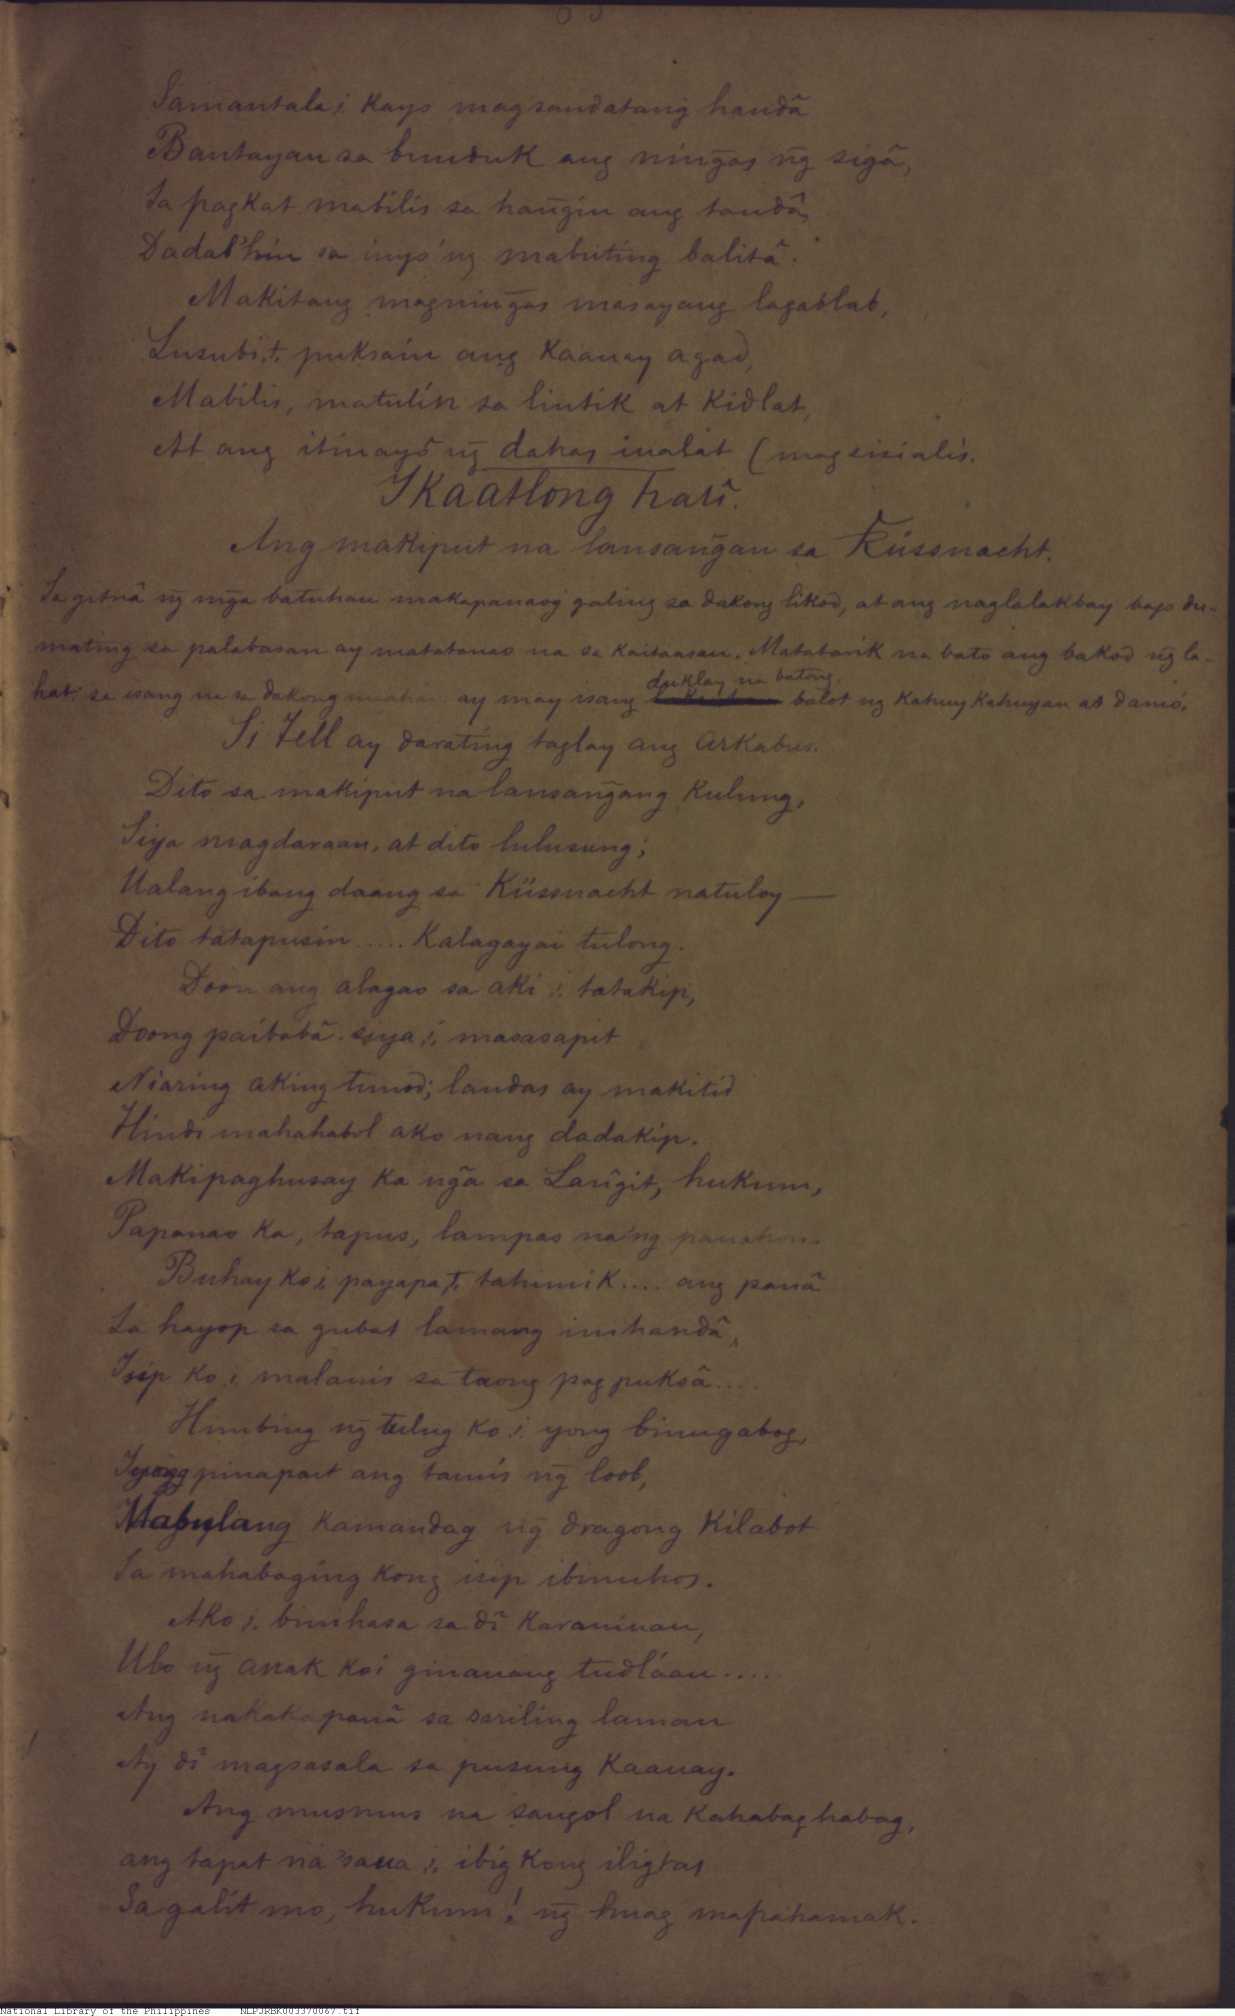 Samantala,i, kayo magsandatang handâ
Bantayan sa bunduk ang nin͠gas n͠g sigâ,
Sa pagkat mabilis sa han͠gin ang tandâ,
Dadal'hin sa inyo'ng mabuting balitâ.
Makitang magnin͠gas masayang lagablab,
Lusubi,t, puksain ang kaauay agad,
Mabilis, matulin sa lintik at kidlat,
At ang itinayô n͠g dahas iualat (magsisialis.
Ikaatlong hati.
Ang makiput na lansan͠gan sa Küssnacht.
Sa gitnâ n͠g mg͠a batuhan makapanaog galing sa dakong likod, at ang naglalakbay bago du-
mating sa palabasan ay matatanao na sa kaitaasan. Matatarik na bato ang bakod n͠g la-
hat: sa isang na sa dakong ay may isang duklay na batong balot ng kahuy kahuyan at damó.
Si Tell ay darating taglay ang arkabus.
Dito sa makiput na lansan͠gang kulung,
Siya magdaraan, at dito lulusung;
Ualang ibang daang sa Küssnacht natuloy —
Dito tatapusin ..... Kalagayai tulong.
Doon ang alagao sa aki,i, tatakip,
Doong paibabâ siya,i, masasapit
Niaring aking tunod; landas ay makitid
Hindi mahahabol ako nang dadakip.
Makipaghusay ka ng͠a sa Lan͠git, hukum,
Papanao ka, tapus, lampas na'ng panahon.
Buhay ko,i, payapa,t, tahimik .... ang panâ
Sa hayop sa gubat lamang inihandâ,
Isip ko,i, malauis sa taong pag puksâ ....
Himbing n͠g tulug ko,i, yong binugabog,
Iyong pinapait ang tamis n͠g loob,
Mabulang kamandag n͠g dragong kilabot
Sa mahabaging kong isip ibinuhos.
Ako,i, binihasa sa dî karaniuan,
Ulo n͠g anak koi ginauang tudláan .....
Ang nakakapanâ sa sariling laman
Ay dî magsasala sa pusung kaauay.
Ang musmus na sangol na kahabaghabag,
ang tapat na 'saua,i, ibig kong iligtas
Sa galit mo, hukum! n͠g huag mapahamak.
National Library of the Philippines NLPJRBK003370067.tif